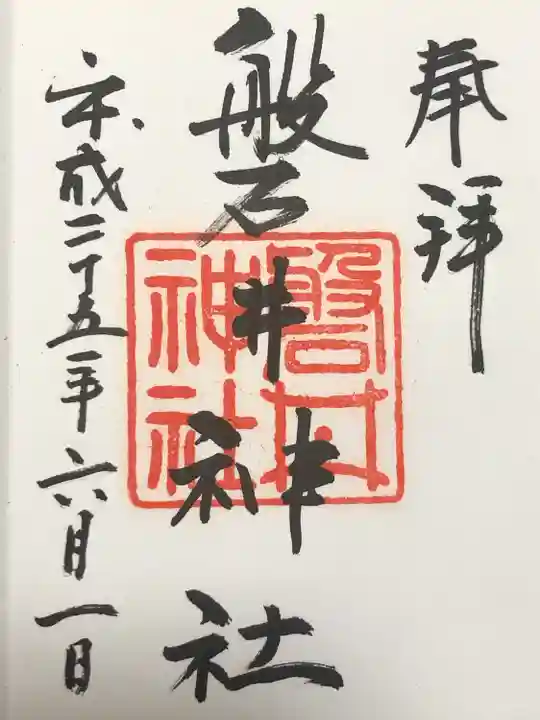 奉拝
磐井神社
磐井
神社
平成二十五年六月一日